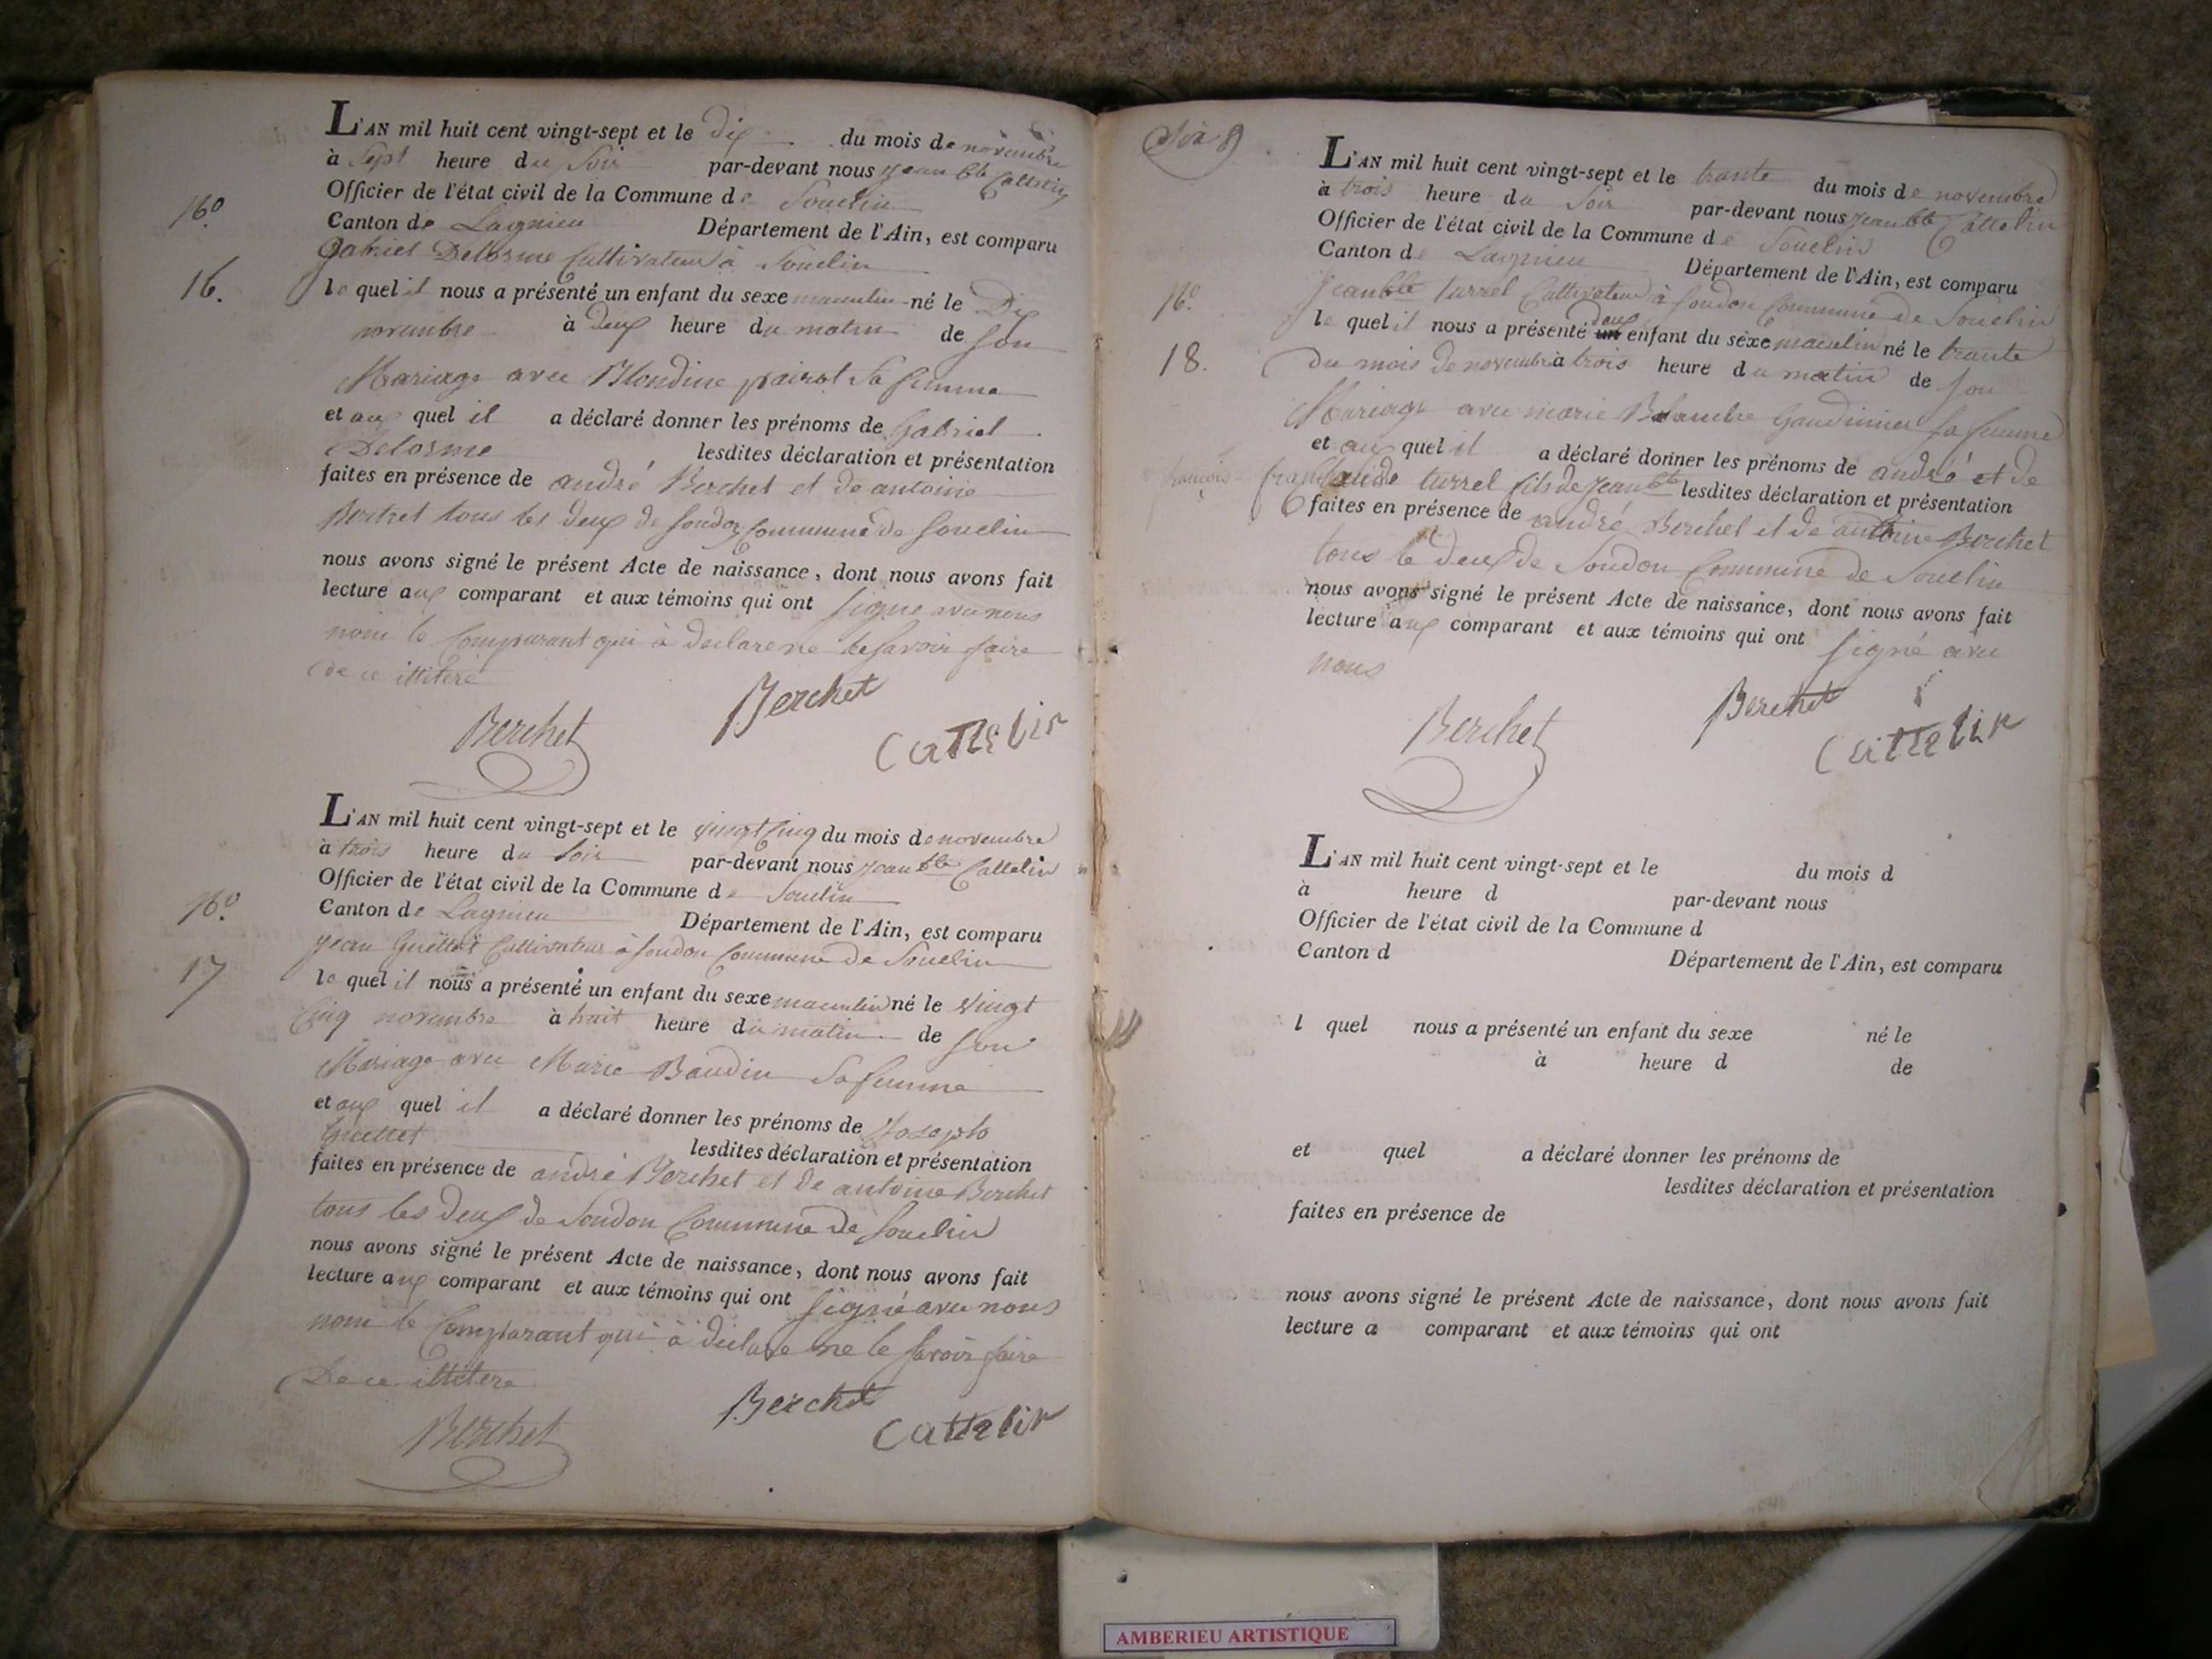 L'AN mil huit cent vingt-sept et le dix du mois de novembre
à Sept heure du Soir par-devant nous jean bte Cattelin
Officier de l'état civil de la Commune de Souclin
N.o Canton de Lagnieu Département de l'Ain, est comparu
gabriel Delorme Cultivateur à Souclin
16. le quel il nous a présenté un enfant du sexe masculin né le Dix
novembre à deux heure du matin de son
Mariage avec Blondine sa femme
et aux quel il a déclaré donner les prénoms de gabriel
Delorme lesdites déclaration et présentation
faites en présence de andré Berchet et de antoine
Berchet tous les deux de Soudon Commune de Souclin
nous avons signé le présent Acte de naissance, dont nous avons fait
lecture aux comparant et aux témoins qui ont signe avec nous
nom le Comparant qui à declare ne le savoir faire
de ce
Berchet Berchet Cattelin
L'AN mil huit cent vingt-sept et le vingt Cinq du mois de novembre
à trois heure du Soir par-devant nous jean bte Cattelin
Officier de l'état civil de la Commune de Souclin
N.o Canton de Lagnieu Département de l'Ain, est comparu
jean Guettet Cultivateur à Soudon Commune de Souclin
17 le quel il nous a présenté un enfant du sexe masculin né le vingt
Cinq novembre à huit heure du matin de son
Mariage avec Marie Baudin Sa femme
et aux quel il a déclaré donner les prénoms de Joseph
Guettet lesdites déclaration et présentation
faites en présence de andré Berchet et de antoine Berchet
tous les deux de Soudon Commune de Souclin
nous avons signé le présent Acte de naissance, dont nous avons fait
lecture aux comparant et aux témoins qui ont signé avec nous
nom le Comparant qui à déclare ne le savoir faire
De ce
Berchet Berchet Cattelin
L'AN mil huit cent vingt-sept et le trante du mois de novembre
à trois heure du Soir par-devant nous jean bte Cattelin
Officier de l'état civil de la Commune de Souclin
Canton de Lagnieu Département de l'Ain, est comparu
N.o jean bte turrel Cultivateur à Soudon Commune de Souclin
le quel il nous a présenté deux enfant du sexe masculin né le trante
18. du mois de novembre à trois heure du matin de son
Mariage avec marie Blanche sa femme
et aux quel il a déclaré donner les prénoms de andré et de
turrel fils de jean bte lesdites déclaration et présentation
faites en présence de andré Berchet et de antoine Berchet
tous le deux de Soudon Commune de Souclin
nous avons signé le présent Acte de naissance, dont nous avons fait
lecture aux comparant et aux témoins qui ont signé avec
nous
Berchet Berchet Cattelin
L'AN mil huit cent vingt-sept et le du mois d
à heure d par-devant nous
Officier de l'état civil de la Commune d
Canton d Département de l'Ain, est comparu
l quel nous a présenté un enfant du sexe né le
à heure d de
et quel a déclaré donner les prénoms de
lesdites déclaration et présentation
faites en présence de
nous avons signé le présent Acte de naissance, dont nous avons fait
lecture a comparant et aux témoins qui ont
AMBERIEU ARTISTIQUE